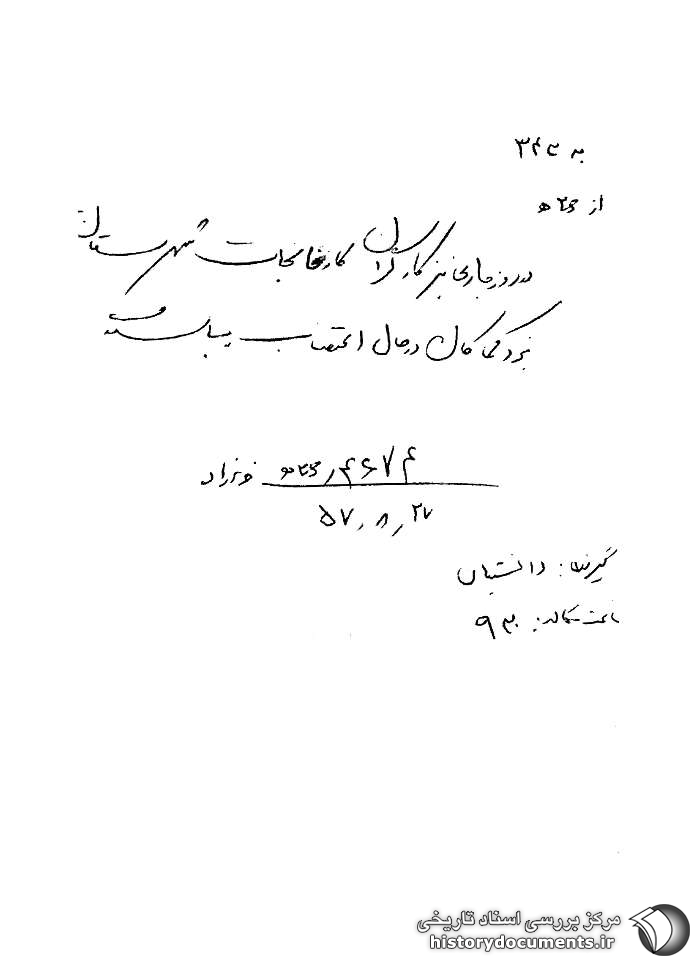 به ۳۴۳
از ۲۶ ه
در روز جاری نیز کارگران کارخانجات شهرستان
یزد کماکان در حال اعتصاب میباشند
۴۶۷۴ / ۲۶ ه
۵۷٫۸٫۲۷
گیرنده: دانشیان
ساعت مکالمه: ۹۳۰
مرکز بررسی اسناد تاریخی
historydocuments.ir